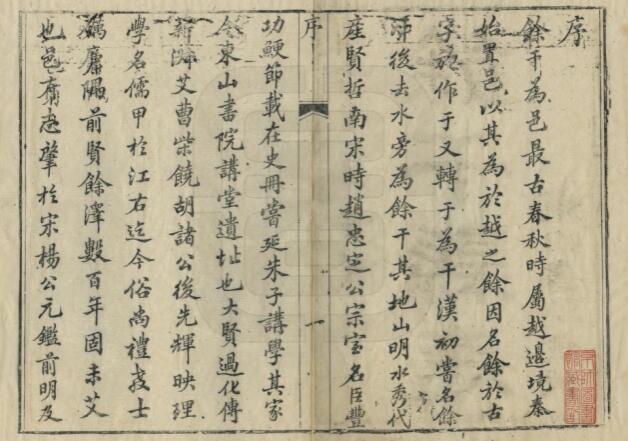 序
餘干為邑最古春秋時屬越邊境秦
始置邑以其為於越之餘因名餘於古
字於作于又轉于為干漢初嘗名餘
汗後去水旁為餘干其地山明水秀代
產賢哲南宋時趙忠定公宗室名臣豐
序
一
功鯁節載在史冊嘗延朱子講學其家
今東山書院講堂遺址也大賢過化傳
薪濟艾曹柴饒胡諸公後先輝映理
學名儒甲於江右迄今俗尚禮教士
礪廉隅前賢餘澤數百年固未艾
也邑有志肇於宋楊公元鑑前明及